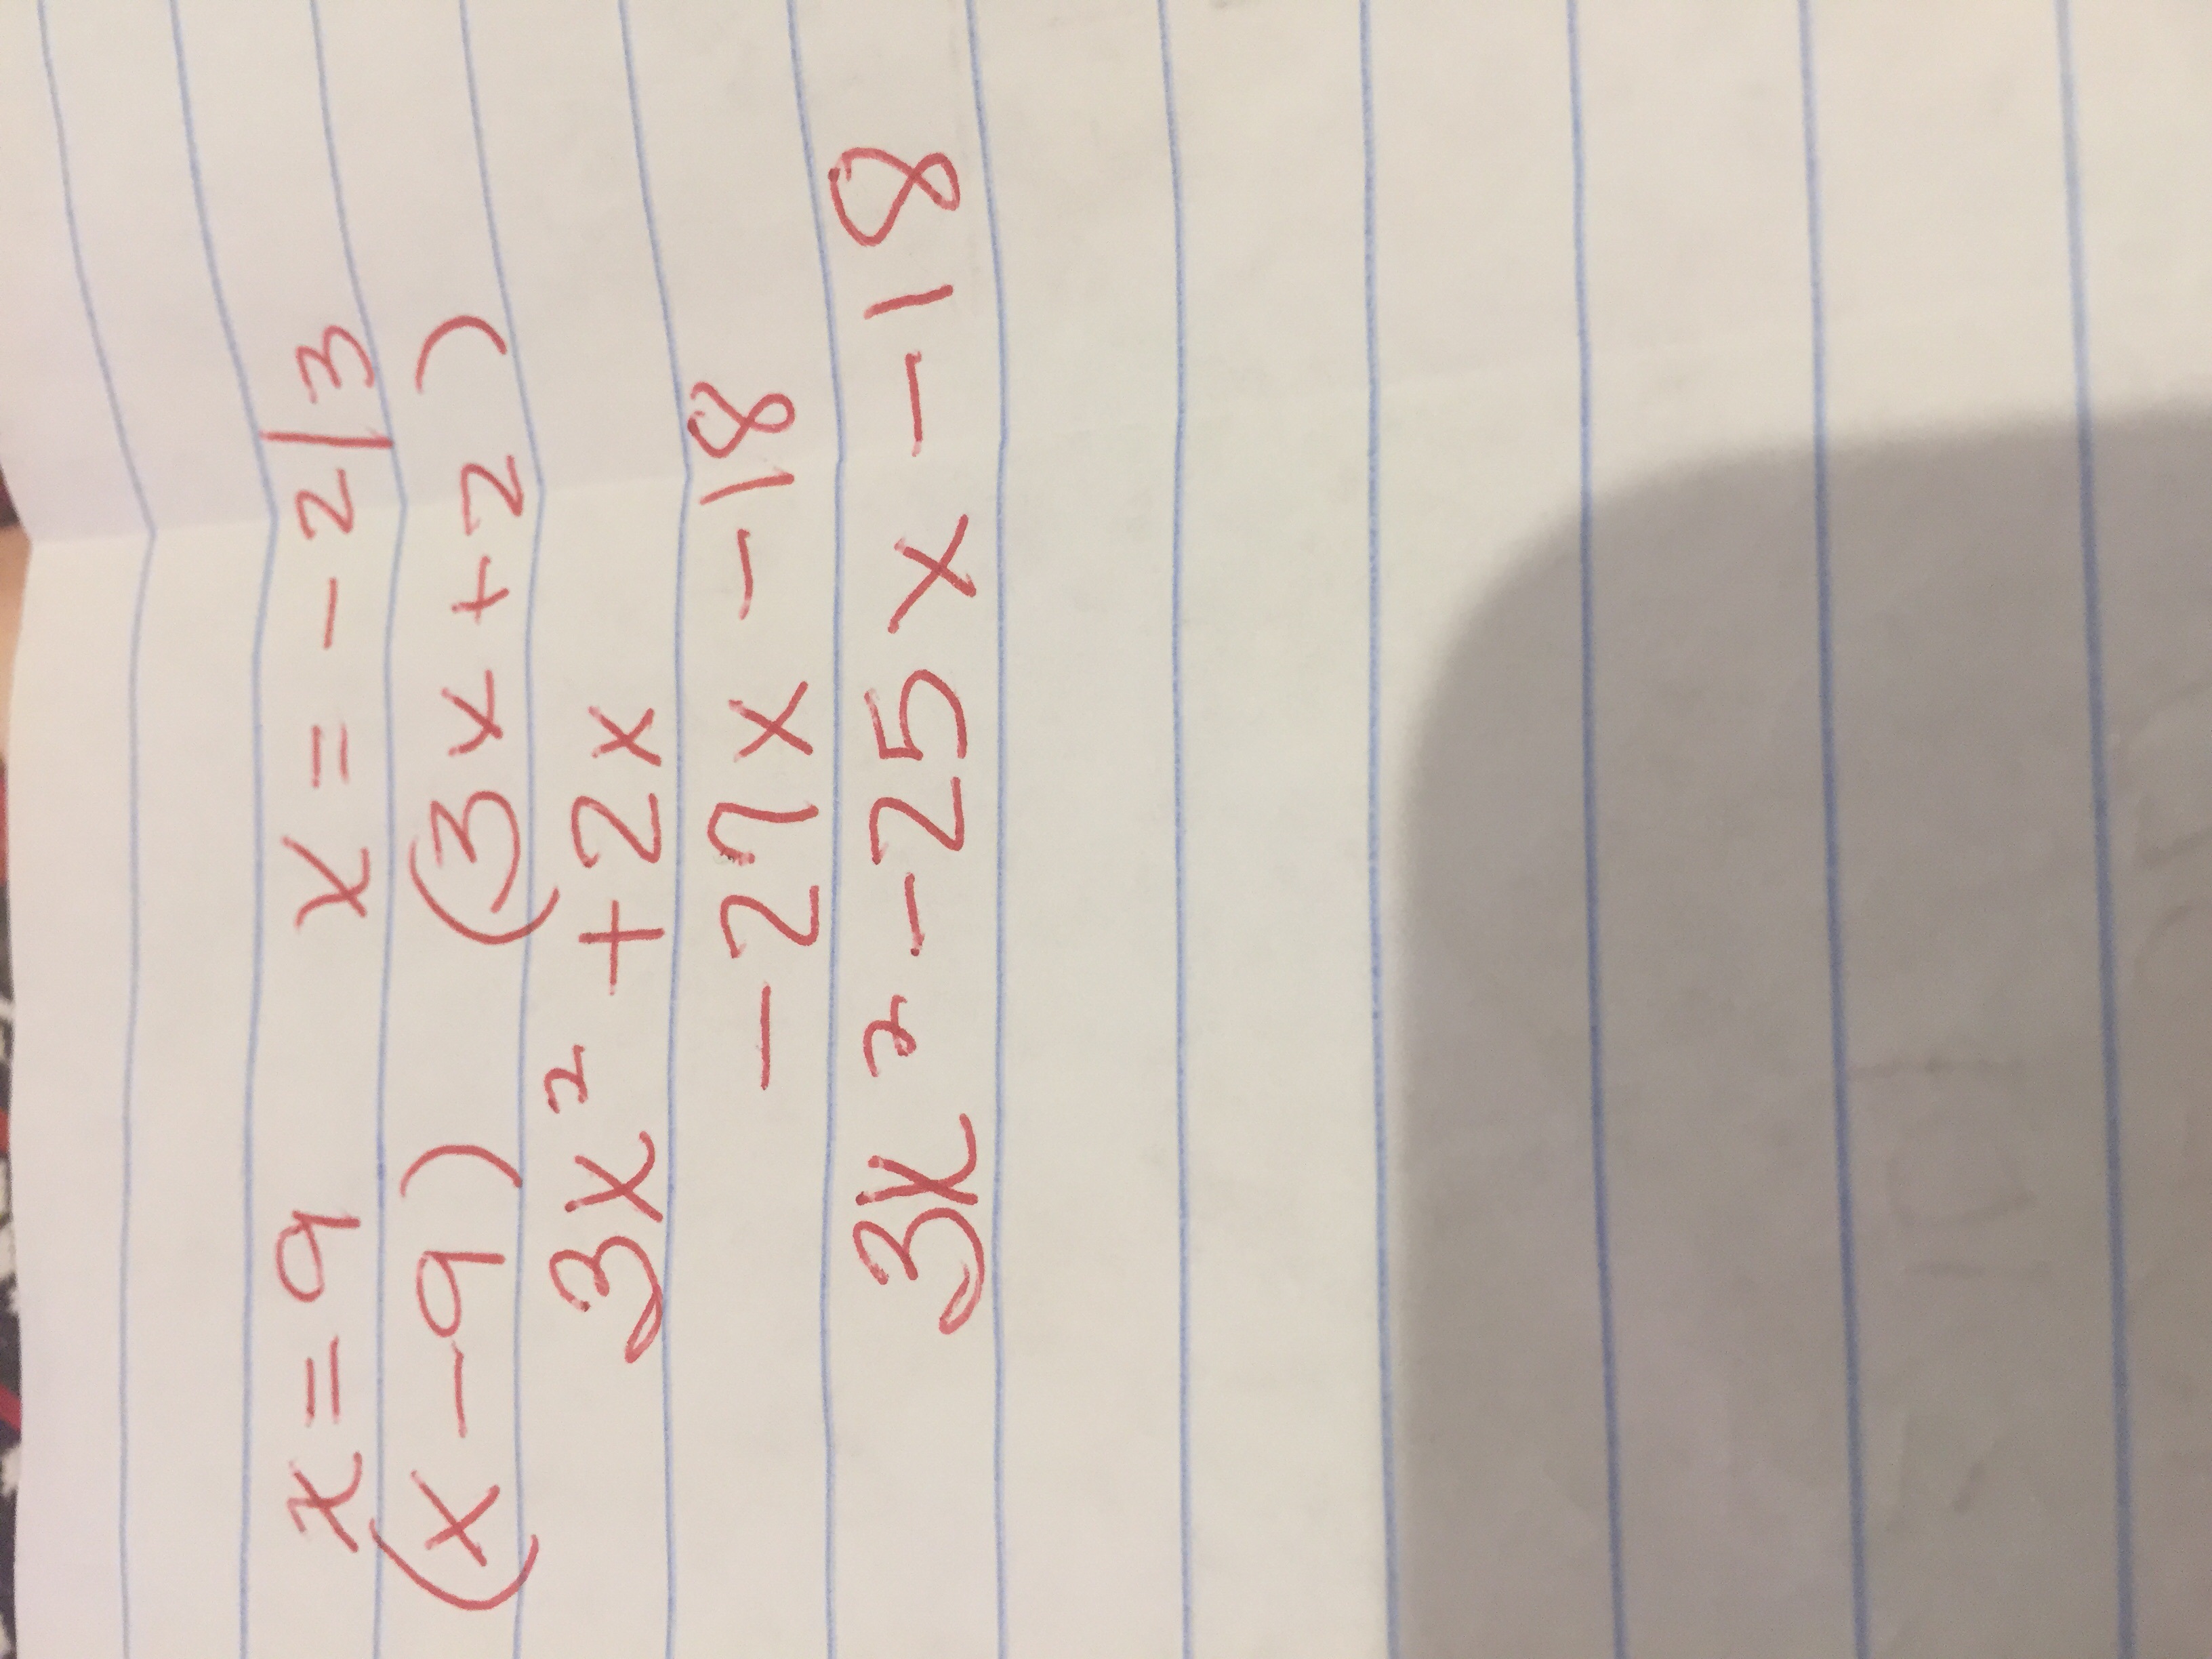 x = 9 x = -2/3
(x - 9) (3x + 2)
3x² + 2x
- 27x - 18
3x² - 25x - 18